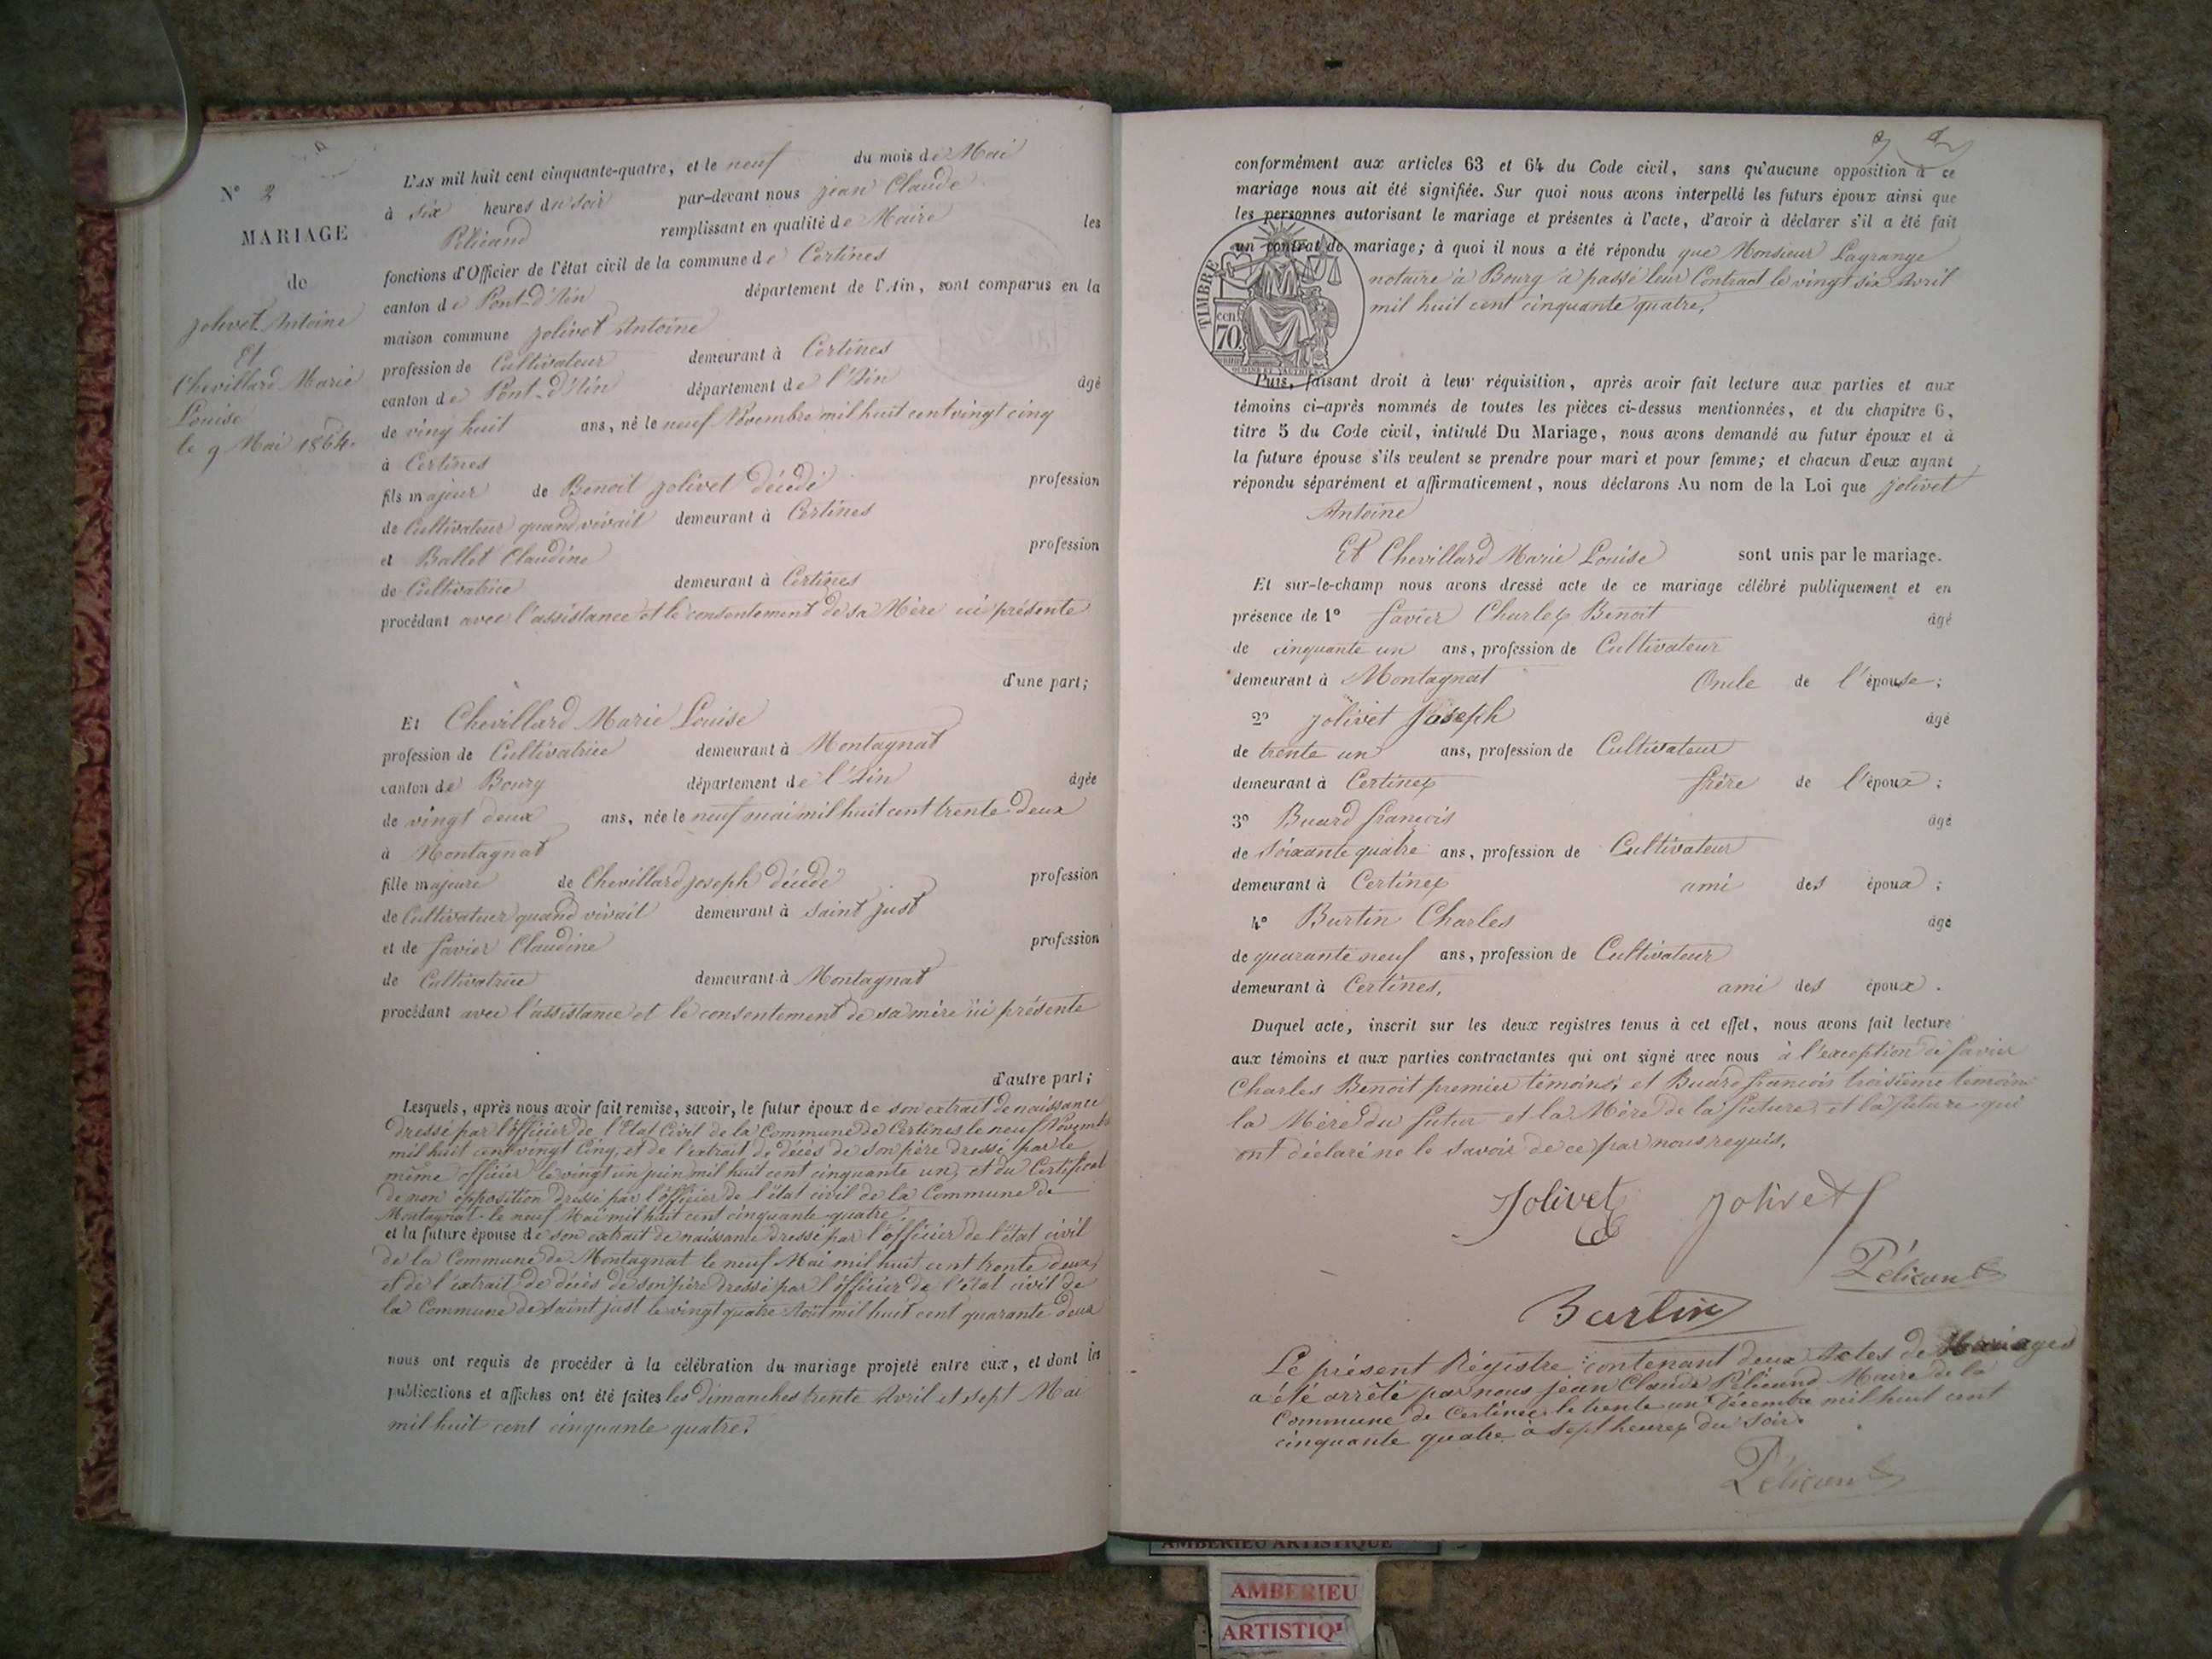 N° 2
MARIAGE
de
Jolivet Antoine
Et
Chevillard Marie
Louise
le 9 Mai 1854.
L'AN mil huit cent cinquante-quatre, et le neuf du mois de Mai
à six heures du soir par-devant nous jean Claude
Pélicand remplissant en qualité de Maire les
fonctions d'Officier de l'état civil de la commune de Certines
canton de Pont-d'Ain département de l'Ain, sont comparus en la
maison commune Jolivet Antoine
profession de Cultivateur demeurant à Certines
canton de Pont-d'Ain département de l'Ain âgé
de ving huit ans, né le neuf Novembre mil huit cent vingt cinq
à Certines
fils majeur de Benoit Jolivet décédé profession
de Cultivateur quand vivait demeurant à Certines
et Ballet Claudine profession
de Cultivatrice demeurant à Certines
procédant avec l'assistance et le consentement de sa Mère ici présente
d'une part;
Et Chevillard Marie Louise
profession de Cultivatrice demeurant à Montagnat
canton de Bourg département de l'Ain âgée
de vingt deux ans, née le neuf mai mil huit cent trente deux
à Montagnat
fille majeure de Chevillard joseph décédé profession
de Cultivateur quand vivait demeurant à saint just
et de favier Claudine profession
de Cultivatrice demeurant à Montagnat
procédant avec l'assistance et le consentement de sa mère ici présente
d'autre part;
Lesquels, après nous avoir fait remise, savoir, le futur époux de son extrait de naissance
dressé par l'officier de l'Etat Civil de la Commune de Certines le neuf Novembre
mil huit cent vingt Cinq, et de l'extrait de décès de son père dressé par le
même officier le vingt un juin mil huit cent cinquante un, et du Certificat
de non opposition dressé par l'officier de l'état civil de la Commune de
Montagnat le neuf Mai mil huit cent cinquante quatre.
et la future épouse de son extrait de naissance dressé par l'officier de l'état civil
de la Commune de Montagnat le neuf Mai mil huit cent trente deux,
et de l'extrait de décès de son père dressé par l'officier de l'état civil de
la Commune de saint just le vingt quatre Août mil huit cent quarante deux
nous ont requis de procéder à la célébration du mariage projeté entre eux, et dont les
publications et affiches ont été faites les dimanches trente Avril et sept Mai
mil huit cent cinquante quatre.
conformément aux articles 63 et 64 du Code civil, sans qu'aucune opposition à ce
mariage nous ait été signifiée. Sur quoi nous avons interpellé les futurs époux ainsi que
les personnes autorisant le mariage et présentes à l'acte, d'avoir à déclarer s'il a été fait
un contrat de mariage; à quoi il nous a été répondu que Monsieur Lagrange
notaire à Bourg a passé leur Contract le vingt six Avril
mil huit cent cinquante quatre,
TIMBRE
cen.
70
Puis, faisant droit à leur réquisition, après avoir fait lecture aux parties et aux
témoins ci-après nommés de toutes les pièces ci-dessus mentionnées, et du chapitre 6,
titre 5 du Code civil, intitulé Du Mariage, nous avons demandé au futur époux et à
la future épouse s'ils veulent se prendre pour mari et pour femme; et chacun d'eux ayant
répondu séparément et affirmativement, nous déclarons Au nom de la Loi que Jolivet
Antoine
Et Chevillard Marie Louise sont unis par le mariage.
Et sur-le-champ nous avons dressé acte de ce mariage célébré publiquement et en
présence de 1° favier Charles Benoit âgé
de cinquante un ans, profession de Cultivateur
demeurant à Montagnat Oncle de l'épouse;
2° Jolivet Joseph âgé
de trente un ans, profession de Cultivateur
demeurant à Certines frère de l'époux;
3° Buard françois âgé
de soixante quatre ans, profession de Cultivateur
demeurant à Certines ami des époux;
4° Burtin Charles âgé
de quarante neuf ans, profession de Cultivateur
demeurant à Certines, ami des époux.
Duquel acte, inscrit sur les deux registres tenus à cet effet, nous avons fait lecture
aux témoins et aux parties contractantes qui ont signé avec nous à l'exception de favier
Charles Benoit premier témoins, et Buard françois troisième temoins
la Mère du futur et la Mère de la future et la future qui
ont déclaré ne le savoir de ce par nous requis.
Jolivet Jolivet
Pélicand
Burtin
Le présent Régistre contenant deux Actes de Mariages
a été arrêté par nous jean Claude Pélicand Maire de la
Commune de Certines le trente un Décembre mil huit cent
cinquante quatre à sept heures du soir.
Pélicand
AMBERIEU ARTISTIQUE
AMBERIEU
ARTISTIQ